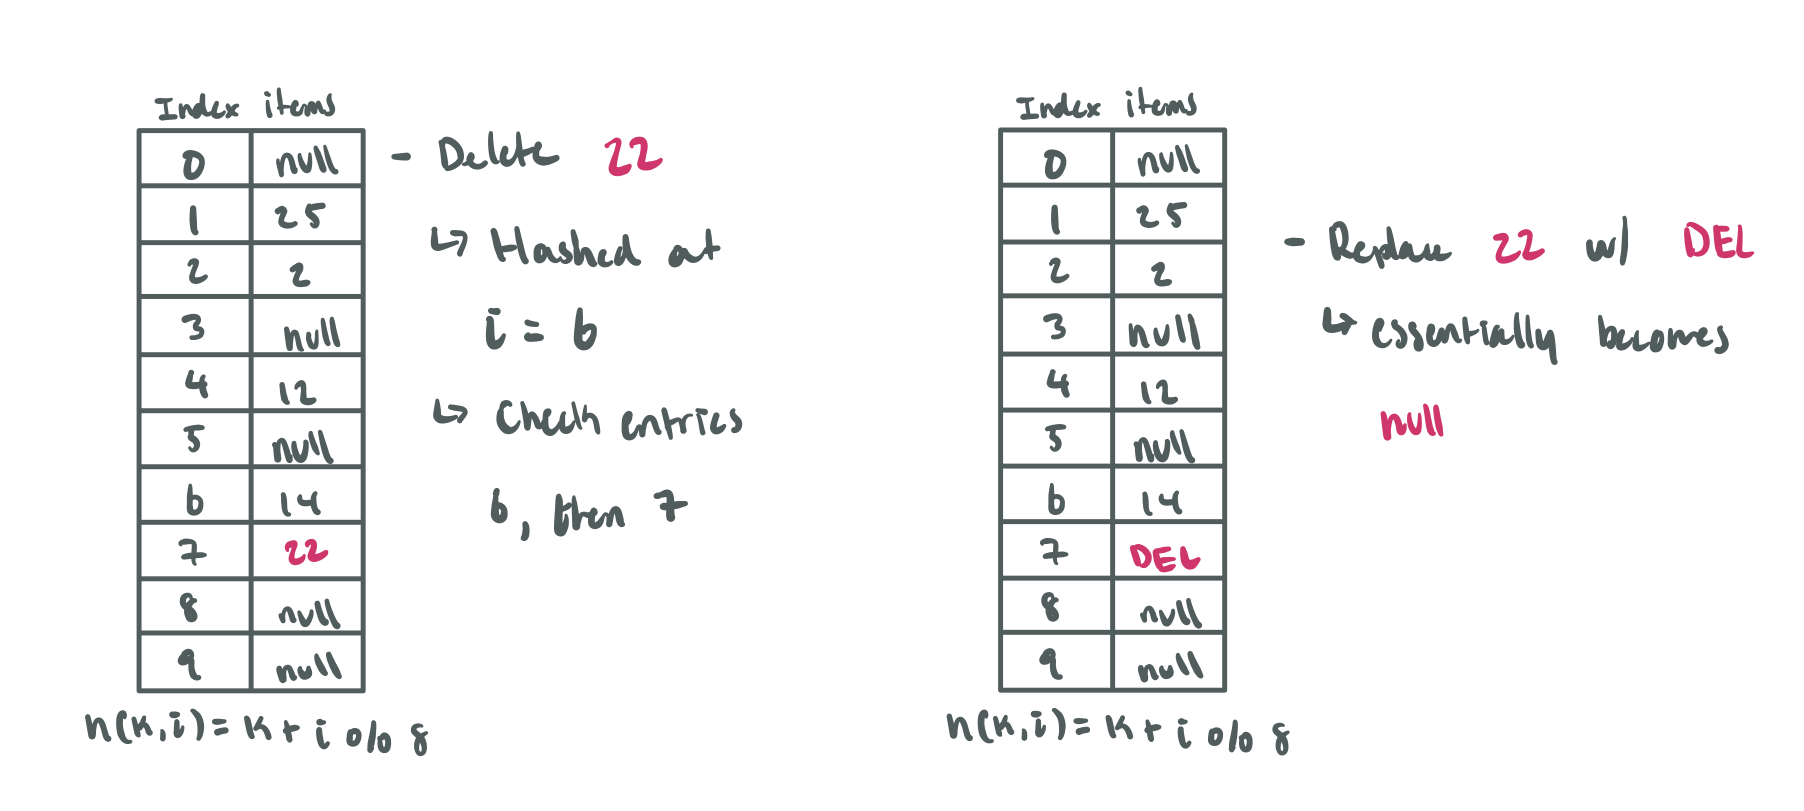 Index items
0 null
1 25
2 2
3 null
4 12
5 null
6 14
7 22
8 null
9 null
h(k,i) = k + i % 8
- Delete 22
↳ Hashed at
i = 6
↳ Check entries
6, then 7
Index items
0 null
1 25
2 2
3 null
4 12
5 null
6 14
7 DEL
8 null
9 null
h(k,i) = k + i % 8
- Replace 22 w/ DEL
↳ essentially becomes
null